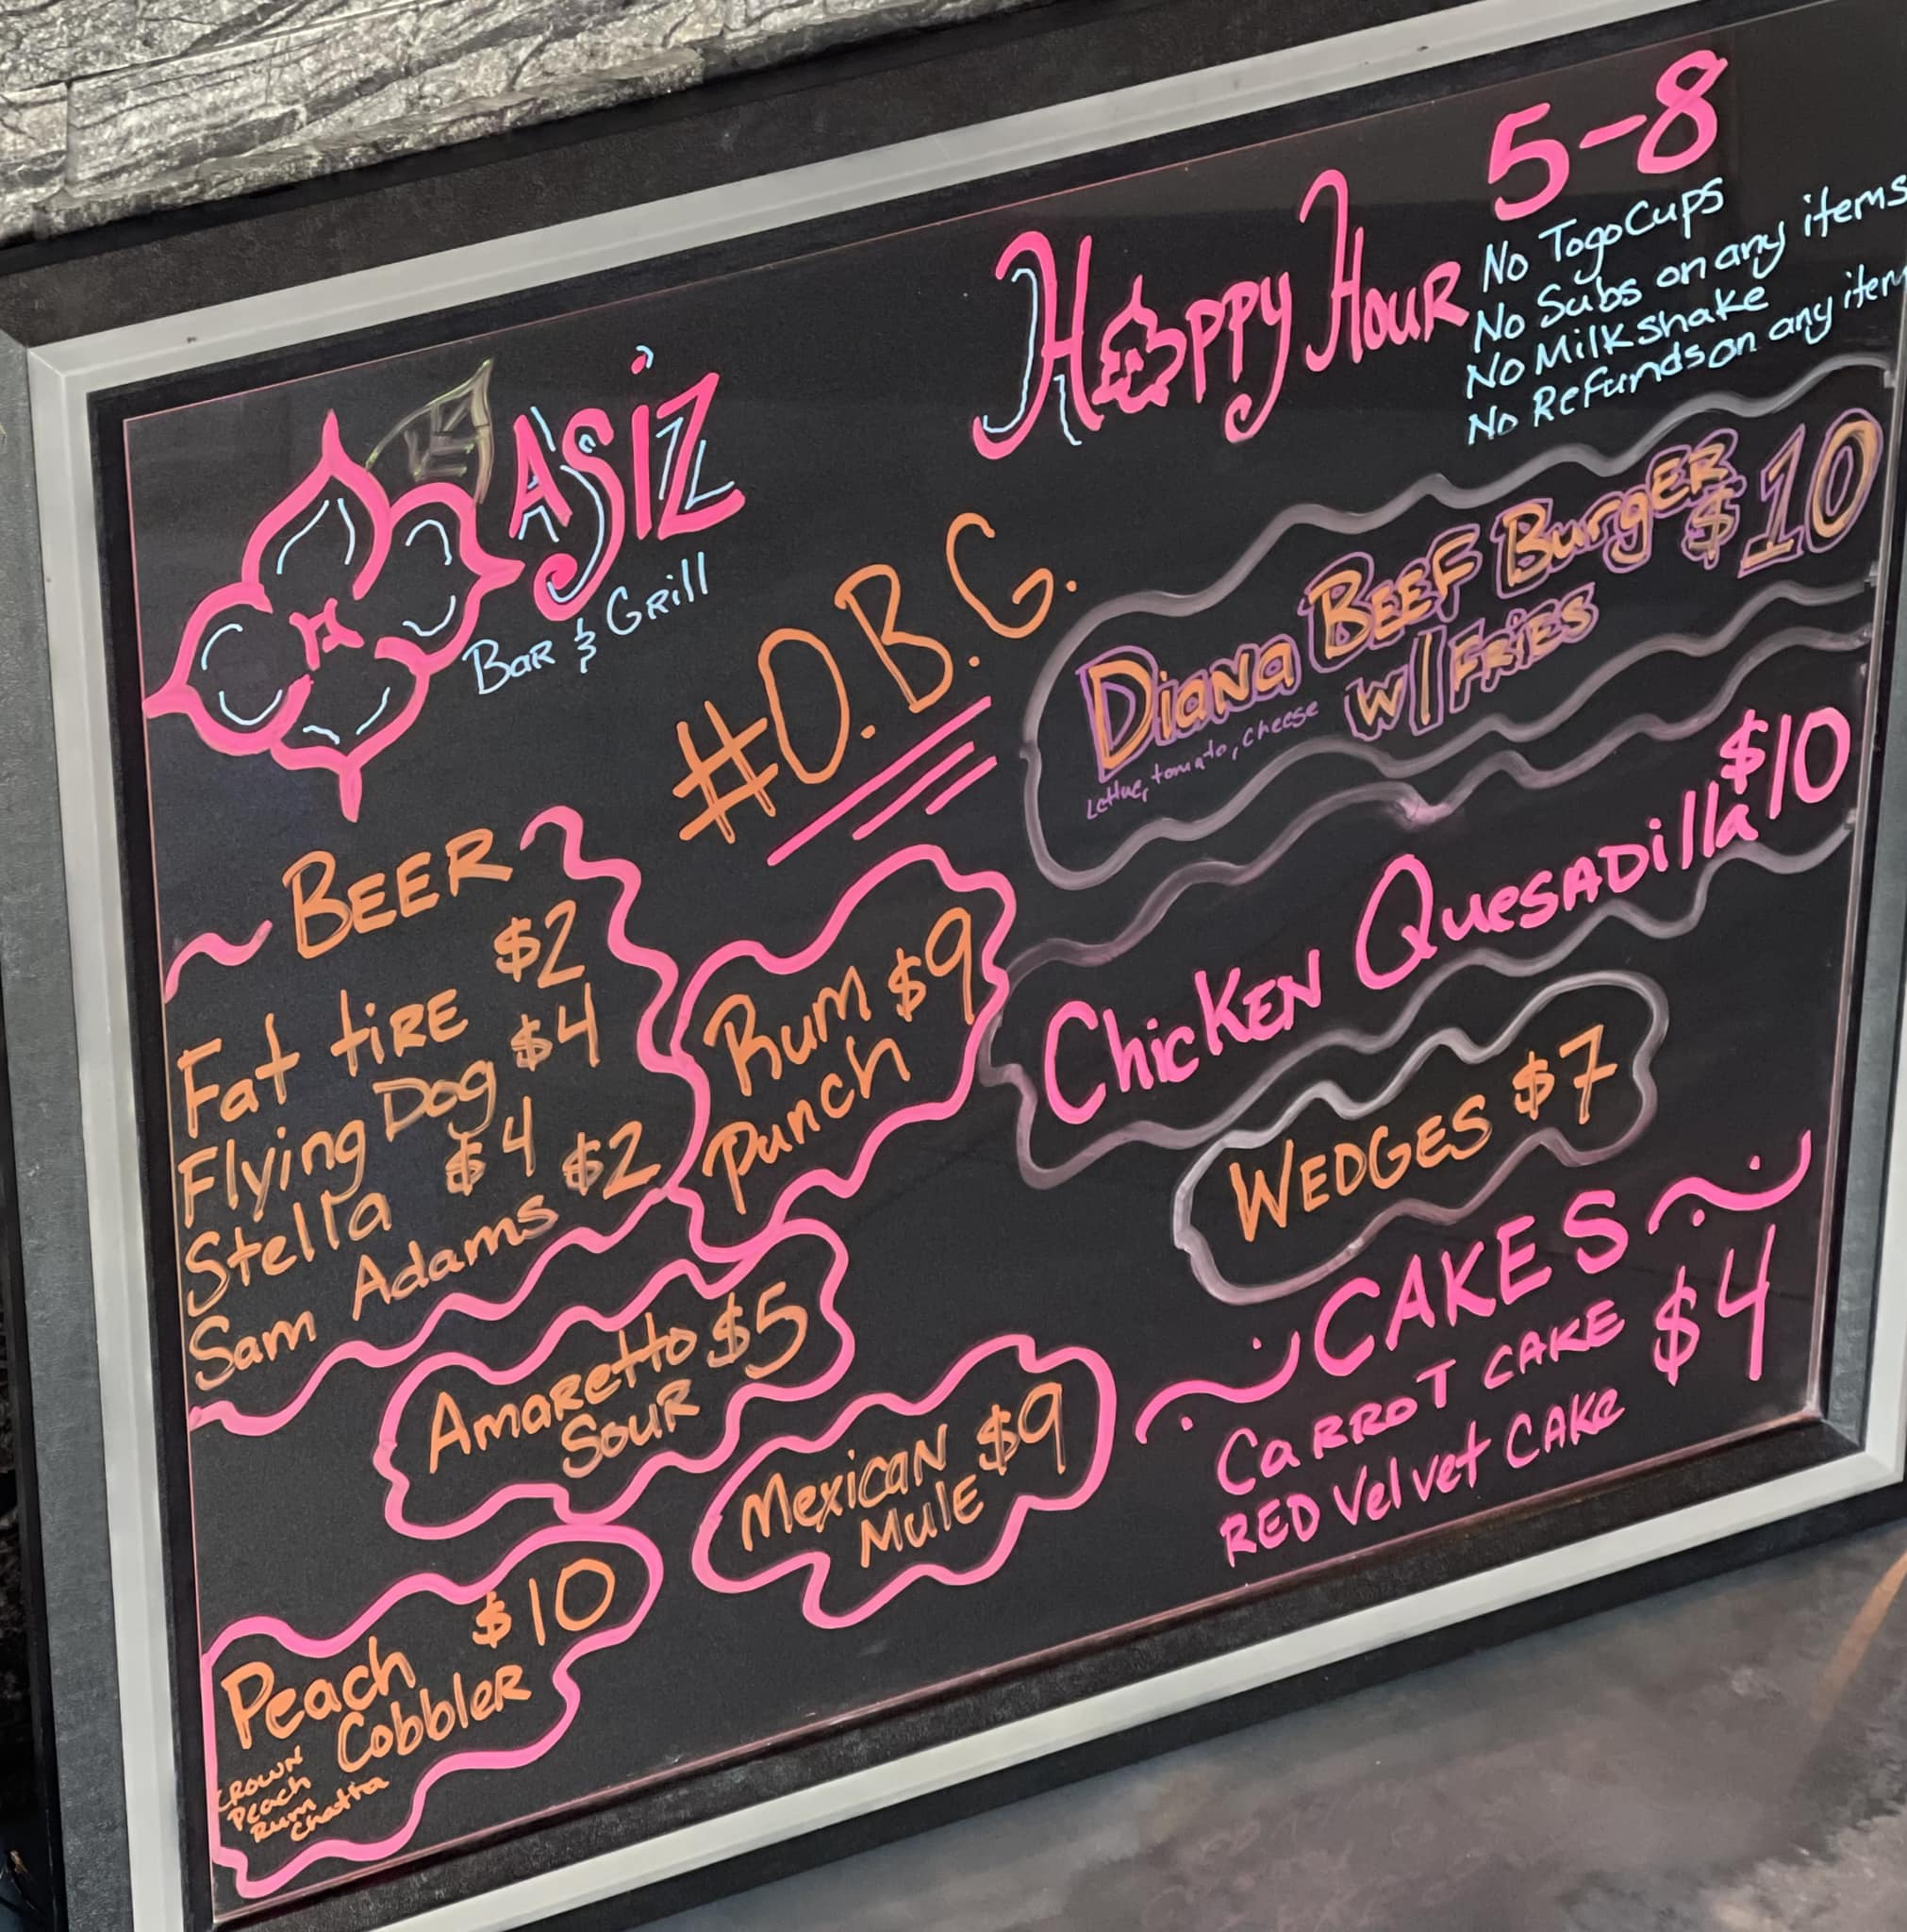 OASIZ
BAR & GRill
HAPPY HOUR 5-8
No Togo Cups
No Subs on any items
No Milkshake
No Refunds on any item
#O.B.G.
BEER
Fat tiRE $2
Flying Dog $4
Stella $4
Sam Adams $2
Rum $9
punch
AmaREtto $5
SouR
MexicaN $9
MulE
Peach $10
CobbleR
CROWN
Peach
Rum
Chatta
Diana BEEF BurgER $10
w/ FRiES
Lettuc, tomato, cheese
ChicKEN QuesADilla $10
WEDGES $7
CAKES
CaRROT CAKE $4
RED Velvet CAKe